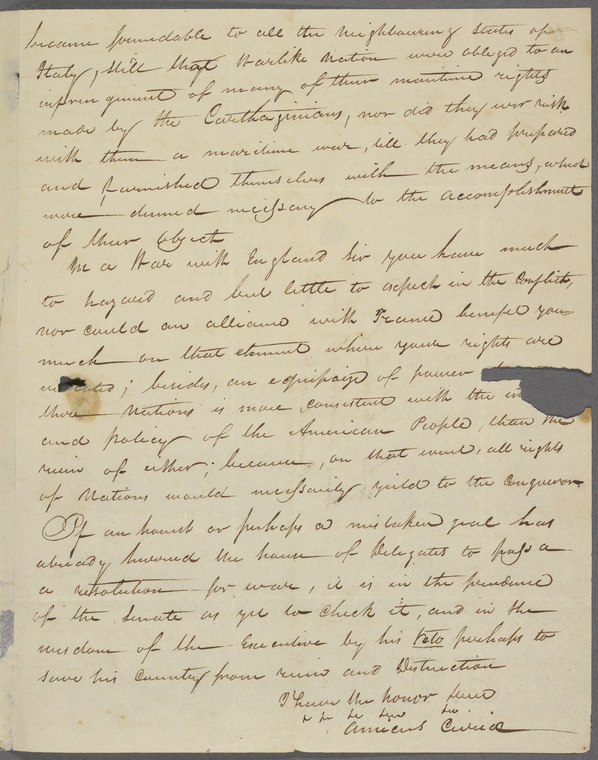 became formidable to all the Neighbouring States of
Italy, still that Warlike Nation were obliged to an
infringment of many of their maritime rights
made by the Carthaginians, nor did they ever risk
with them a maritime war, till they had prepared
and furnished themselves with the means, which
were deemed necessary to the accomplishment
of their object
In a War with England Sir you have much
to hazard and but little to expect in the Conflict,
nor could an alliance with France benefit you
much on that element where your rights are
; besides, an equipoize of power
those Nations is more consistent with the
and policy of the American People, than the
ruin of either; because, on that event, all rights
of Nations would necessarily yield to the Conqueror.
If an honest or perhaps a mistaken zeal has
already hurried the house of Delegates to pass a
a resolution for war, it is in the prudence
of the Senate as yet to check it, and in the
wisdom of the Executive by his Veto perhaps to
save his Country from ruin and Distruction
I have the honor
Amicus Curiæ